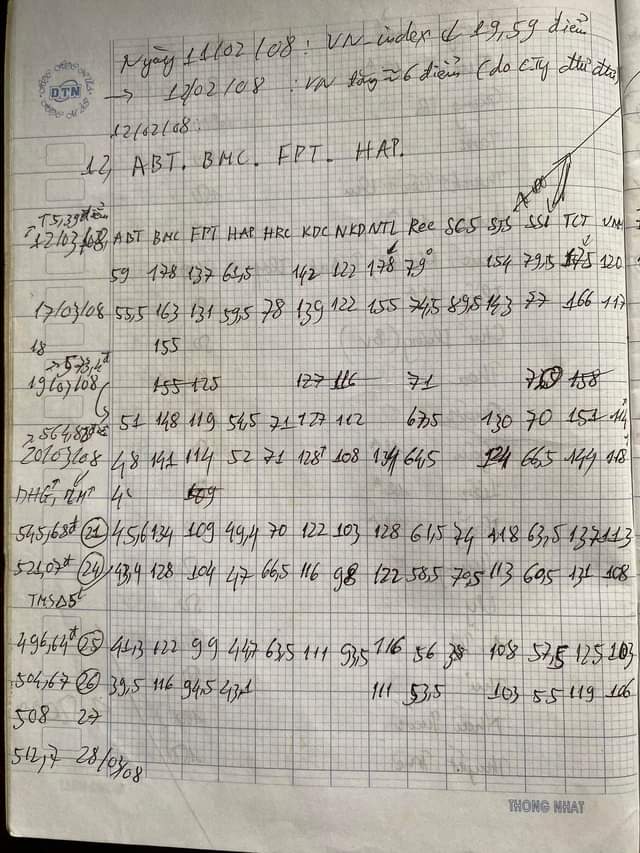 DTN
Ngày 11/02/08: VN_index ↓ 19,59 điểm
→ 12/02/08: VN tăng ≈ 6 điểm (do cty
12/02/08:
12, ABT. BMC. FPT. HAP.
12/03/08, ABT BMC FPT HAP HRC KDC NKD NTL Ree SGS SJS SSI TCT VNM
59 178 137 61,5 142 122 178 79 154 79,5 175 120
17/03/08 55,5 163 131 59,5 78 139 122 155 74,5 89,5 143 77 166 117
18 155
→ 573,4đ
19/03/08 155 125 127 116 71 158
51 148 119 54,5 71 127 112 67,5 130 70 151
564,8
20/03/08 48 141 114 52 71 128 108 134 64,5 124 66,5 144 118
DHG, 109
545,68đ 21 45,6 134 109 49,4 70 122 103 128 61,5 74 118 63,5 137 113
521,07đ 24 43,4 128 104 47 66,5 116 98 122 58,5 70,5 113 60,5 131 108
496,64đ 25 41,3 122 99 44,7 63,5 111 93,5 116 56 108 57,5 125 103
504,67 26 39,5 116 94,5 43,1 111 53,5 103 55 119 106
508 27
512,7 28/03/08
THONG NHAT